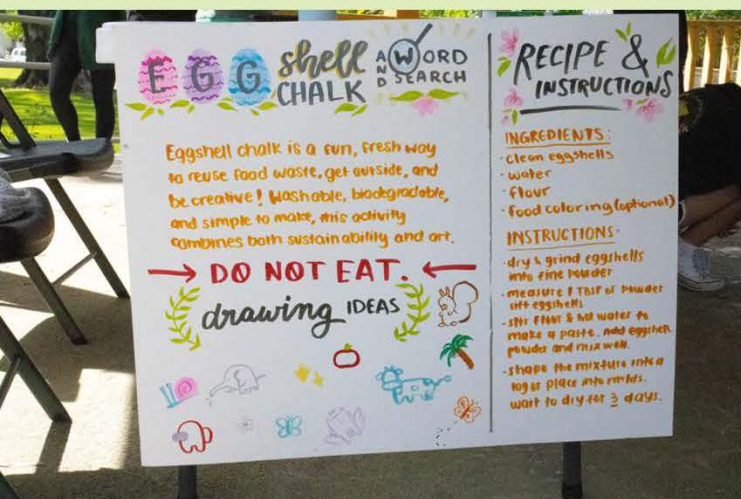 EGG shell
CHALK
AND WORD
SEARCH
Eggshell chalk is a fun, fresh way
to reuse food waste, get outside, and
be creative! Washable, biodegradable,
and simple to make, this activity
combines both sustainability and art.
→ DO NOT EAT. ←
drawing IDEAS
RECIPE &
INSTRUCTIONS
INGREDIENTS:
· clean eggshells
· water
· flour
· food coloring (optional)
INSTRUCTIONS:
· dry & grind eggshells
into fine powder
· measure 1 TBSP of powder
sift eggshells
· stir flour & hot water to
make a paste. add eggshell
powder and mix well.
· shape the mixture into a
log or place into molds.
wait to dry for 3 days.